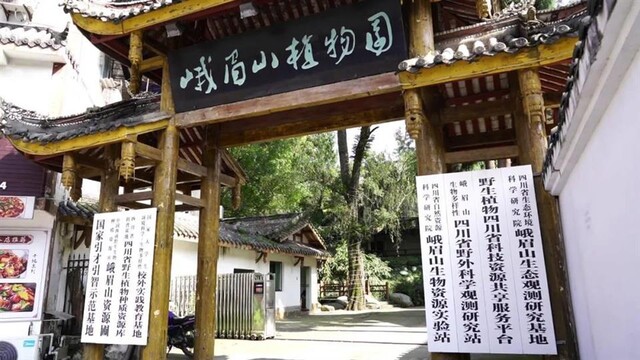 峨眉山植物园
四川省生态环境
科学研究院
峨眉山生态观测研究基地
野生植物四川省科技资源共享服务平台
峨眉山
生物多样性
四川省野外科学观测研究站
四川省自然资源
科学研究院
峨眉山生物资源实验站
校外实践教育基地
四川省野生植物种质资源库
峨眉山资源圃
国家引才引智示范基地